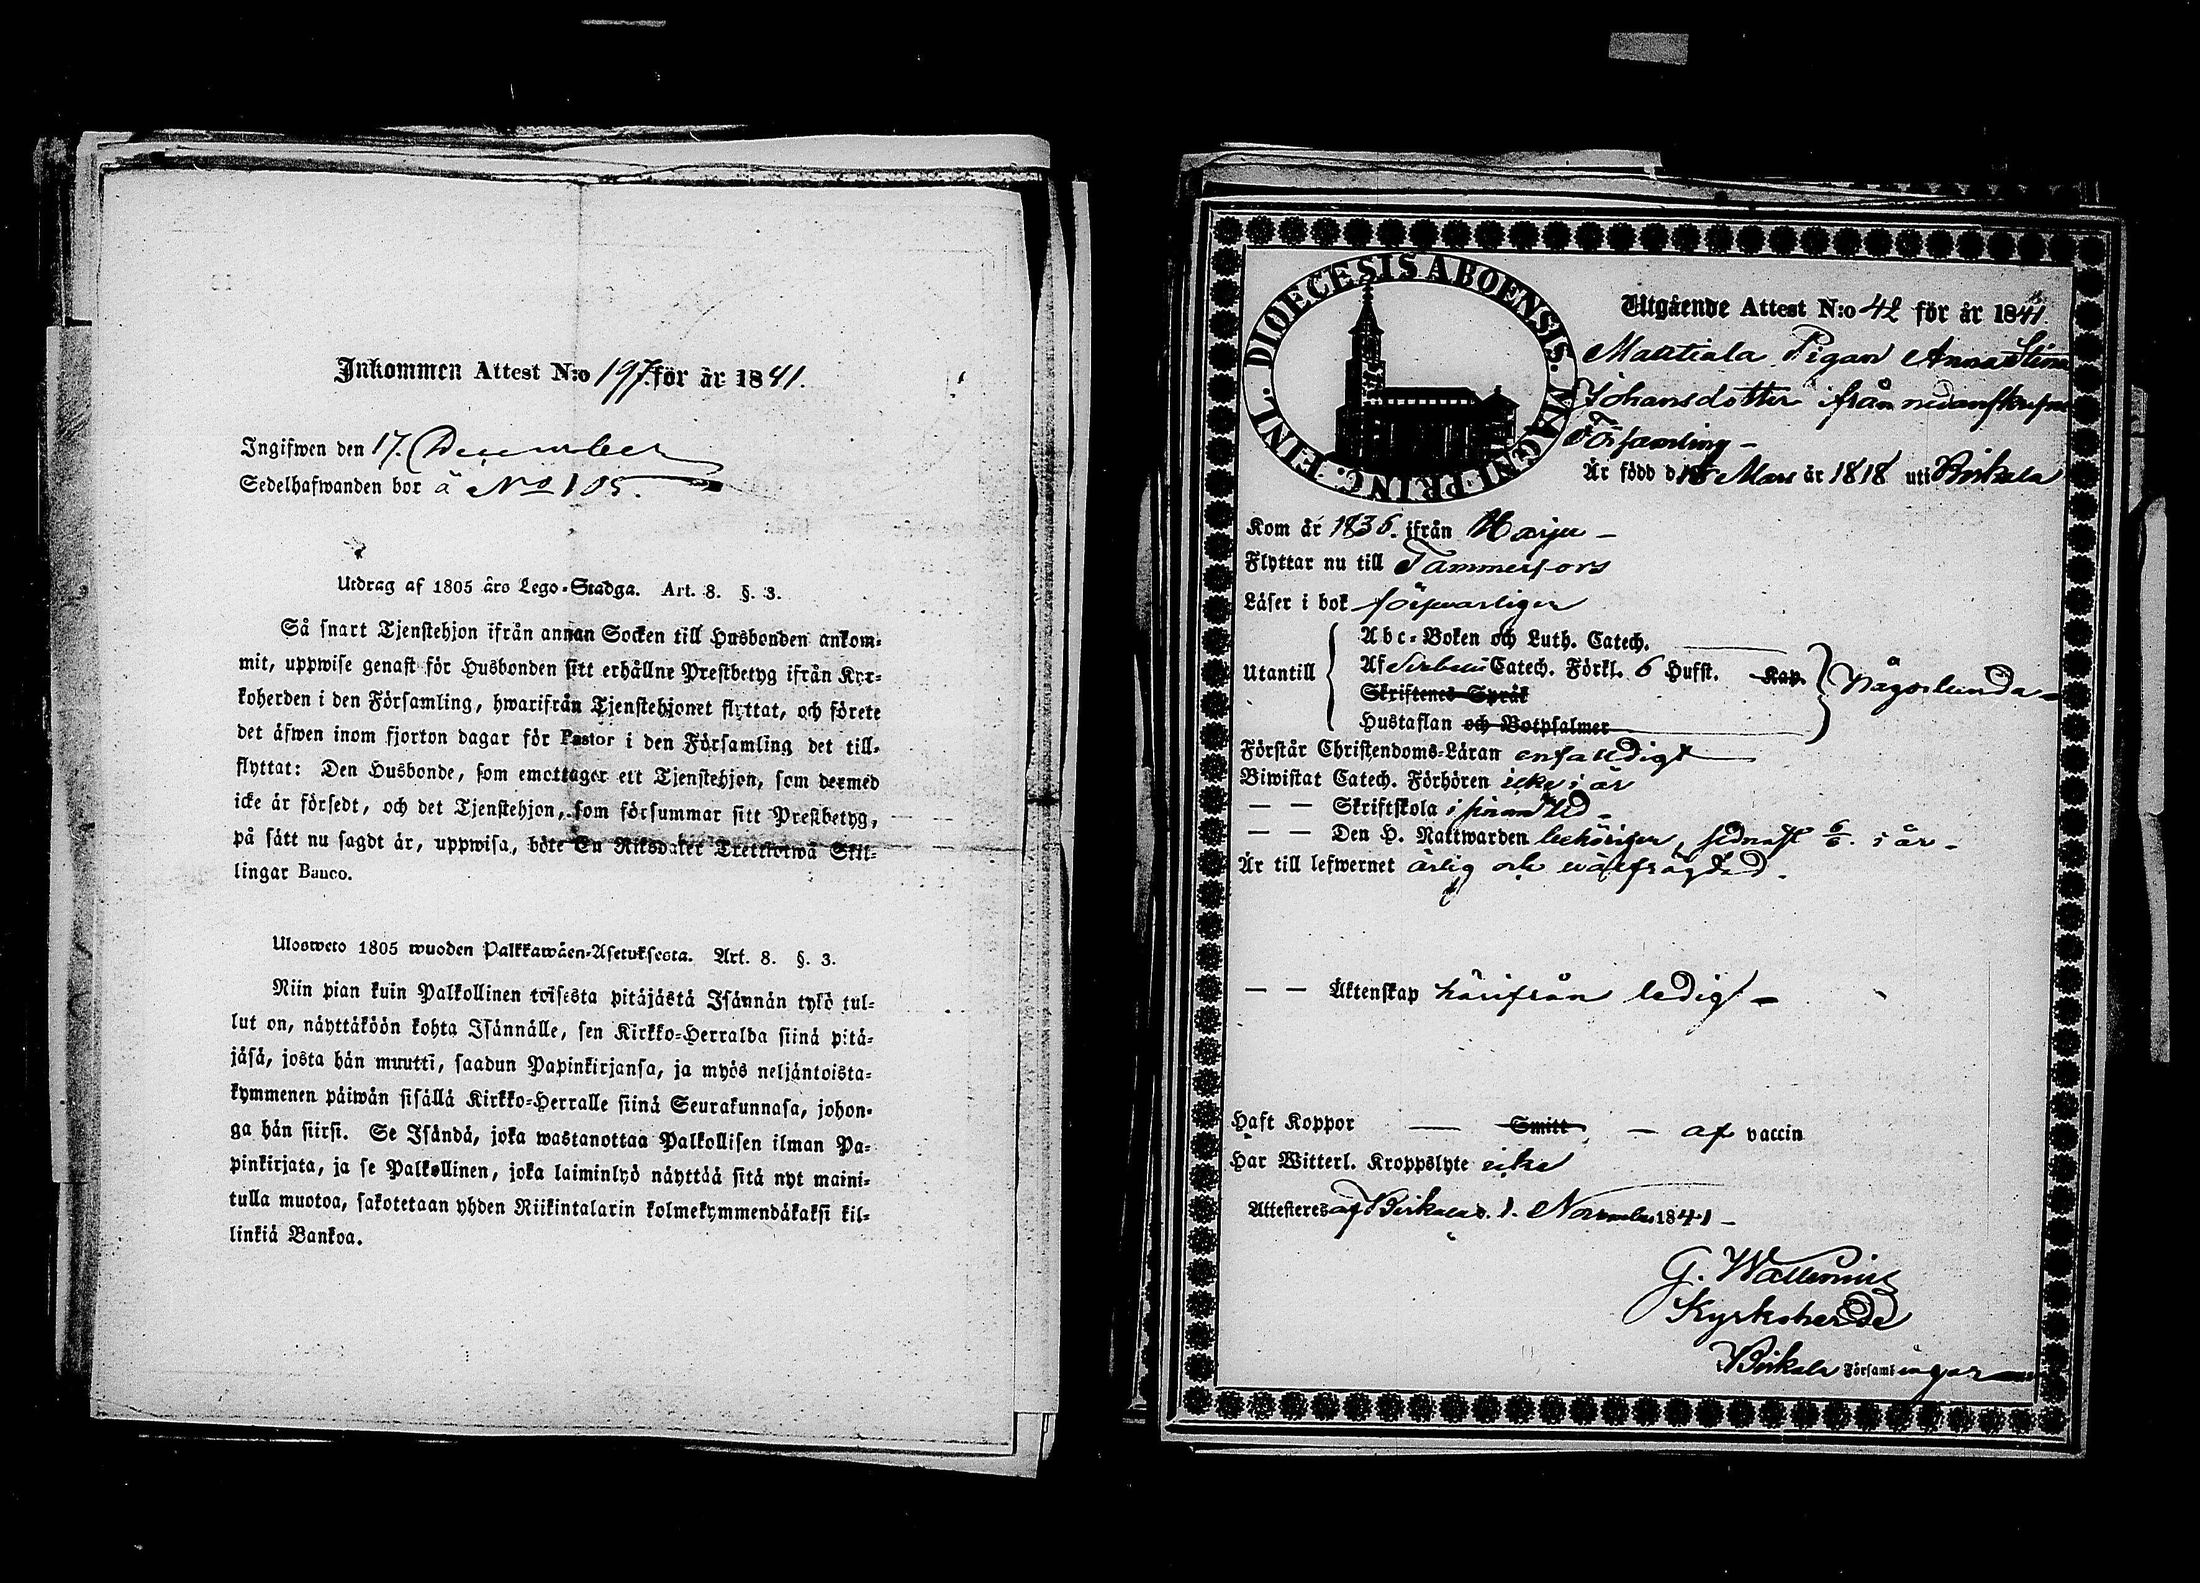 Inkommen Attest N:o 197. för år 1841.
Ingifwen den 17. December
Sedelhafwanden bor å No 105.
Utdrag af 1805 års Lego-Stadga. Art. 8. §. 3.
Så snart Tjenstehjon ifrån annan Socken till Husbonden ankom-
mit, uppwise genast för Husbonden sitt erhållne Prestbetyg ifrån Kyr-
koherden i den Församling, hwarifrån Tjenstehjonet flyttat, och förete
det äfwen inom fjorton dagar för Pastor i den Församling det till-
flyttat: Den Husbonde, som emottager ett Tjenstehjon, som dermed
icke är försedt, och det Tjenstehjon, som försummar sitt Prestbetyg,
på sätt nu sagdt är, uppwisa, böte En Riksdaler Trettiotwå Skil-
lingar Banco.
Ulosweto 1805 wuoden Palkkawäen-Asetuksesta. Art. 8. §. 3.
Niin pian kuin Palkollinen toisesta pitäjästä Isännän tykö tul-
lut on, näyttäköön kohta Isännälle, sen Kirkko-Herralda siinä pitä-
jäsä, josta hän muutti, saadun Papinkirjansa, ja myös neljäntoista-
kymmenen päiwän sisällä Kirkko-Herralle siinä Seurakunnasa, johon-
ga hän siirsi. Se Isändä, joka wastanottaa Palkollisen ilman Pa-
pinkirjata, ja se Palkollinen, joka laiminlyö näyttää sitä nyt maini-
tulla muotoa, sakotetaan yhden Riikintalarin kolmekymmendäkaksi kil-
linkiä Bankoa.
DIOECESIS ABOENSIS. MAGNI PRINC. FINL.
Utgående Attest N:o 42 för år 1841.
Mattiala Pigan Anna Stina
Johansdotter ifrån nedanskrefne
Församling -
Är född d. 18 Mars år 1818 uti Birkala
Kom år 1836. ifrån Harju -
Flyttar nu till Tammerfors
Läser i bok försvarligen
Abc-Boken och Luth. Catech.
Utantill Af Svebelii Catech. Förkl. 6 Hufst. Kap. någorlunda
Skriftenes Språk
Hustaflan och Botpsalmer
Förstår Christendoms-Läran enfalldigt
Biwistat Catech. Förhören icke i år
— — Skriftskola i sinom tid -
— — Den H. Nattwarden behörigen, sednast 6/6. i år -
Är till lefwernet ärlig och wälfrägdad.
— — Äktenskap härifrån ledig -
Haft Koppor — Smitt — af vaccin
Har Witterl. Kroppslyte icke
Attesteres af Birkala d. 1. November 1841 -
G. Wallenius
Kyrkoherde
Birkala Församlingar